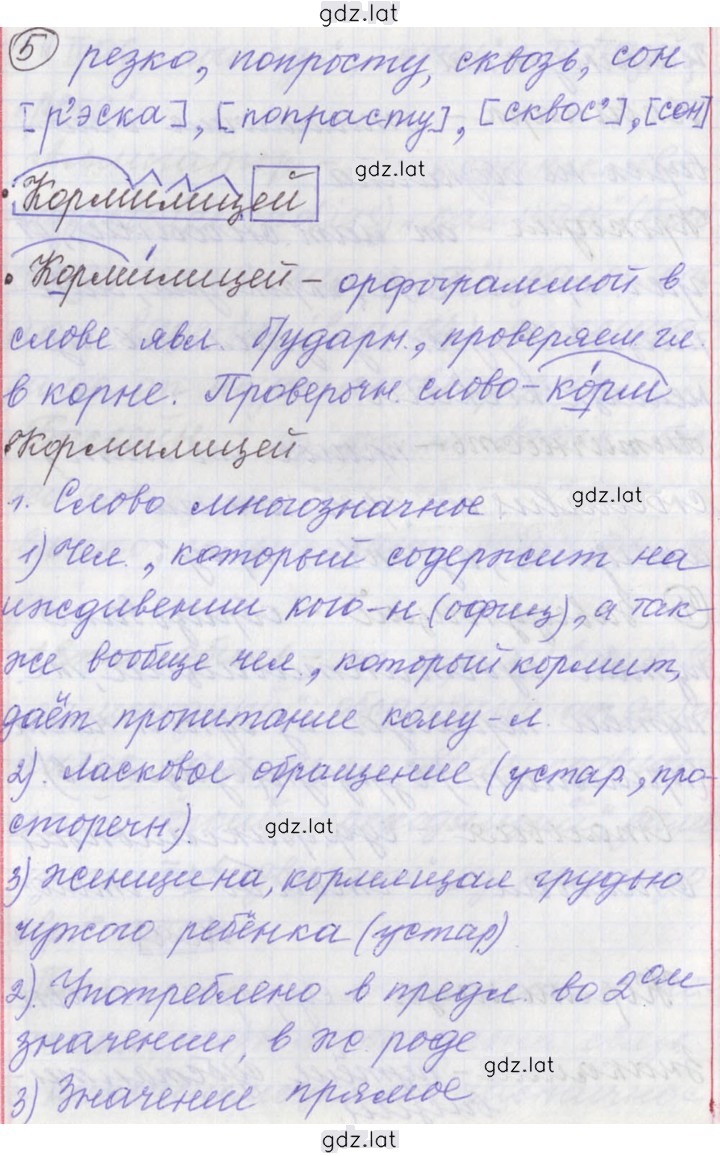 gdz.lat
5 резко, попросту, сквозь, сон
[р'эска], [попрасту], [сквос'], [сон]
gdz.lat
• Кормилицей
• Кормилицей – орфограммой в
слове явл. б/ударн., проверяем гл.
в корне. Проверочн. слово – корм
• Кормилицей
gdz.lat
1. Слово многозначное
1) Чел., который содержит на
иждивении кого-н (офиц), а так-
же вообще чел., который кормит,
даёт пропитание кому-л.
2). Ласковое обращение (устар., про-
сторечн.)
gdz.lat
3) Женщина, кормящая грудью
чужого ребёнка (устар)
2). Употреблено в предл. во 2ом
значении, в ж. роде
gdz.lat
3) Значение прямое
gdz.lat